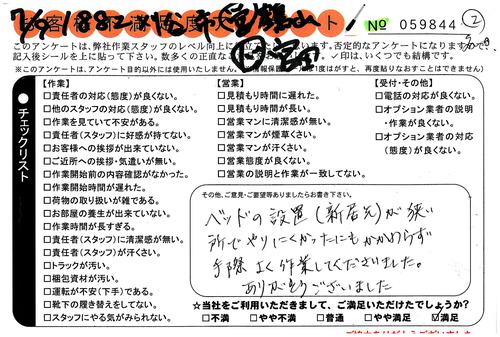 7/9 1882
No 059844 ②
このアンケートは、弊社作業スタッフのレベル向上に
記入後シールを上に貼って下さい。
✓印は、いくつでも結構です。
※このアンケートは、アンケート目的以外には使用いたしません。
チェックリスト
【作業】
□責任者の対応(態度)が良くない。
□他のスタッフの対応(態度)が良くない。
□作業を見ていて不安がある。
□責任者(スタッフ)に好感が持てない。
□お客様への挨拶が出来ていない。
□ご近所への挨拶・気遣いが無い。
□作業開始前の内容確認がなかった。
□作業開始時間が遅れた。
□荷物の取り扱いが雑である。
□お部屋の養生が出来ていない。
□作業時間が長すぎる。
□責任者(スタッフ)に清潔感が無い。
□責任者(スタッフ)が汗くさい。
□トラックが汚い。
□梱包資材が汚い。
□運転が不安(下手)である。
□靴下の履き替えをしてない。
□スタッフにやる気がみられない。
【営業】
□見積もり時間に遅れた。
□見積もり時間が長い。
□営業マンに清潔感が無い。
□営業マンが煙草くさい。
□営業マンが汗くさい。
□営業態度が良くない。
□営業の説明と作業が一致してない。
【受付・その他】
□電話の対応が良くない。
□オプション業者の説明
・作業が良くない。
□オプション業者の対応
(態度)が良くない。
その他、ご意見・ご要望等ありましたらお書き下さい。
ベッドの設置(新居先)が狭い
所でやりにくかったにもかかわらず
手際よく作業してくださいました。
ありがとうございました
☆当社をご利用いただきまして、ご満足いただけたでしょうか?
□不満 □やや不満 □普通 □やや満足 ☑満足